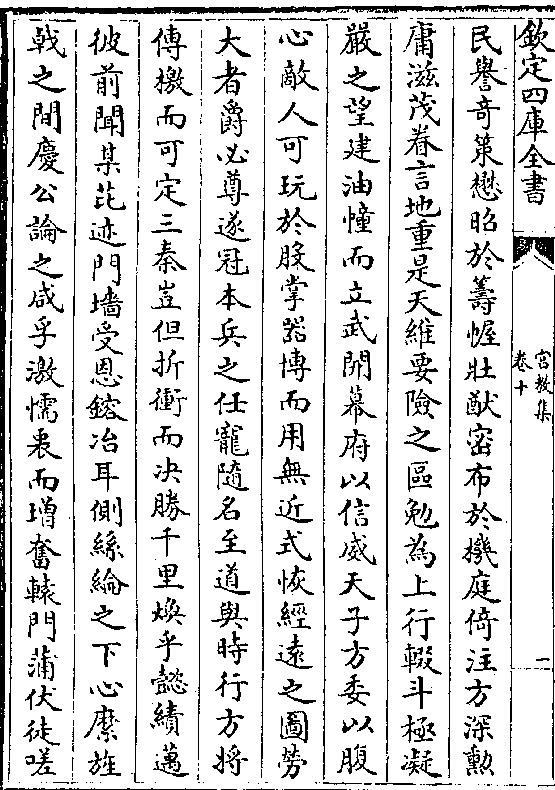 欽定四庫全書
宮教集
卷十
一
民譽奇策懋昭於籌幄壯猷密布於機庭倚注方深勲
庸滋茂眷言地重是天維要險之區勉為上行輟斗極凝
嚴之望建油幢而立武開幕府以信威天子方委以腹
心敵人可玩於股掌器博而用無近式恢經遠之圖勞
大者爵必尊遂冠本兵之任寵隨名至道與時行方將
傳檄而可定三秦豈但折衝而決勝千里煥乎懿績邁
彼前聞某芘迹門墻受恩鎔冶耳側絲綸之下心縻旌
戟之間慶公論之咸孚激懦衷而增奮轅門蒲伏徒嗟